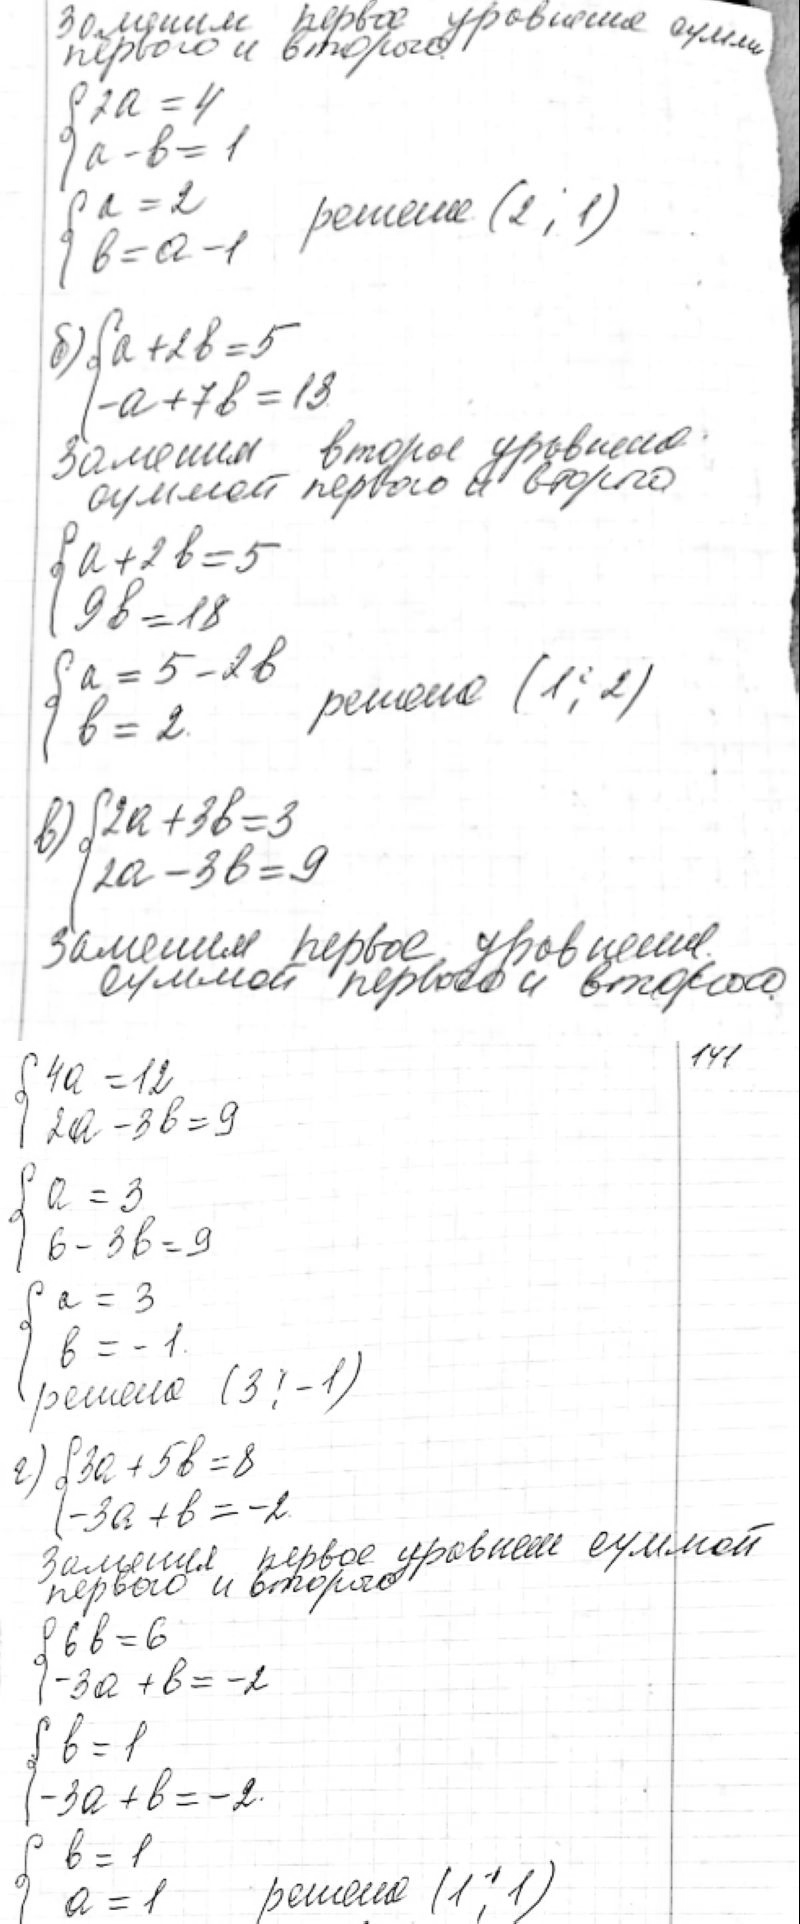 Заменим первое уравнение суммой
первого и второго
{2a = 4
{a - b = 1
{a = 2
{b = a - 1 решение (2; 1)
б) {a + 2b = 5
{-a + 7b = 13
Заменим второе уравнение
суммой первого и второго
{a + 2b = 5
{9b = 18
{a = 5 - 2b
{b = 2. решение (1; 2)
в) {2a + 3b = 3
{2a - 3b = 9
Заменим первое уравнение
суммой первого и второго
141
{4a = 12
{2a - 3b = 9
{a = 3
{6 - 3b = 9
{a = 3
{b = -1.
решение (3; -1)
г) {3a + 5b = 8
{-3a + b = -2.
Заменим первое уравнение суммой
первого и второго
{6b = 6
{-3a + b = -2
{b = 1
{-3a + b = -2.
{b = 1
{a = 1 решение (1; 1)